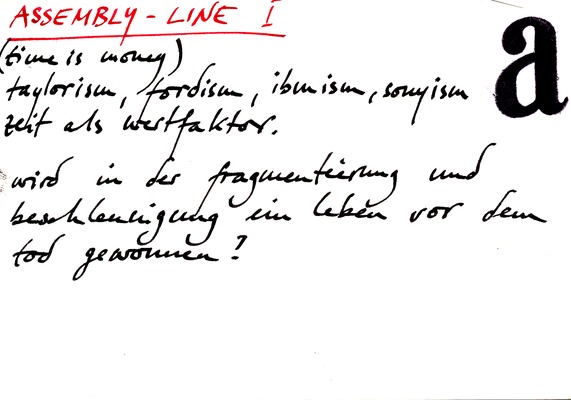 ASSEMBLY-LINE I
a
(time is money)
taylorism, fordism, ibmism, sonyism
zeit als wertfaktor.
wird in der fragmentierung und
beschleunigung ein leben vor dem
tod gewonnen?